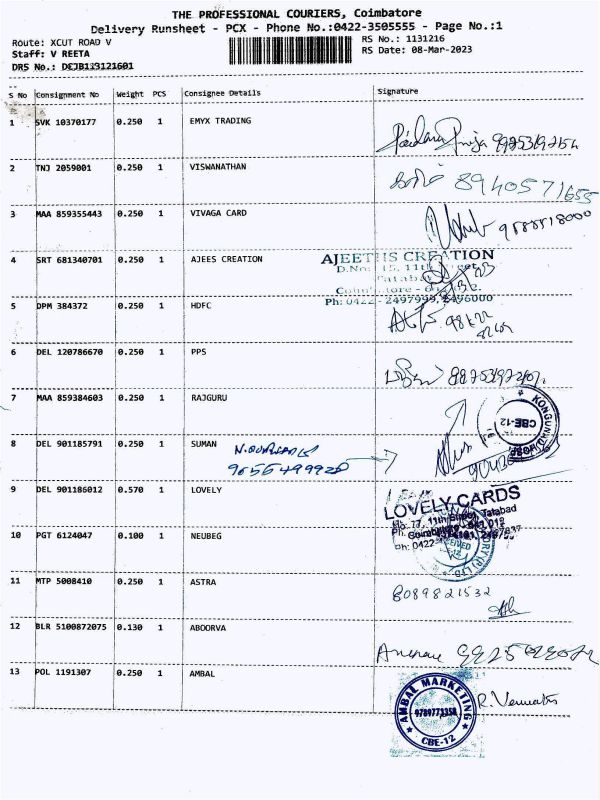 THE PROFESSIONAL COURIERS, Coimbatore
Delivery Runsheet - PCX - Phone No.:0422-3505555 - Page No.:1
Route: XCUT ROAD V
RS No.: 1131216
Staff: V REETA
RS Date: 08-Mar-2023
DRS No.: DEJB113121601
S No Consignment No Weight PCS Consignee Details Signature
1 SVK 10370177 0.250 1 EMYX TRADING
2 TNJ 2059001 0.250 1 VISWANATHAN 8940571655
3 MAA 859355443 0.250 1 VIVAGA CARD
4 SRT 681340701 0.250 1 AJEES CREATION
AJEETHS CREATION
D.No: 15, 11th Street,
Tatabad
Coimbatore
Ph: 0422 - 2497999, 2496000
5 DPM 384372 0.250 1 HDFC
6 DEL 120786670 0.250 1 PPS
7 MAA 859384603 0.250 1 RAJGURU
CBE-12
8 DEL 901185791 0.250 1 SUMAN
9655499928
9 DEL 901186012 0.570 1 LOVELY
LOVELY CARDS
No. 77, 11th Street, Tatabad
Coimbatore - 641 012
Ph: 0422
10 PGT 6124047 0.100 1 NEUBEG
11 MTP 5008410 0.250 1 ASTRA 8089821532
12 BLR 5100872075 0.130 1 ABOORVA
13 POL 1191307 0.250 1 AMBAL
AMBAL MARKETING
9789773358
CBE-12